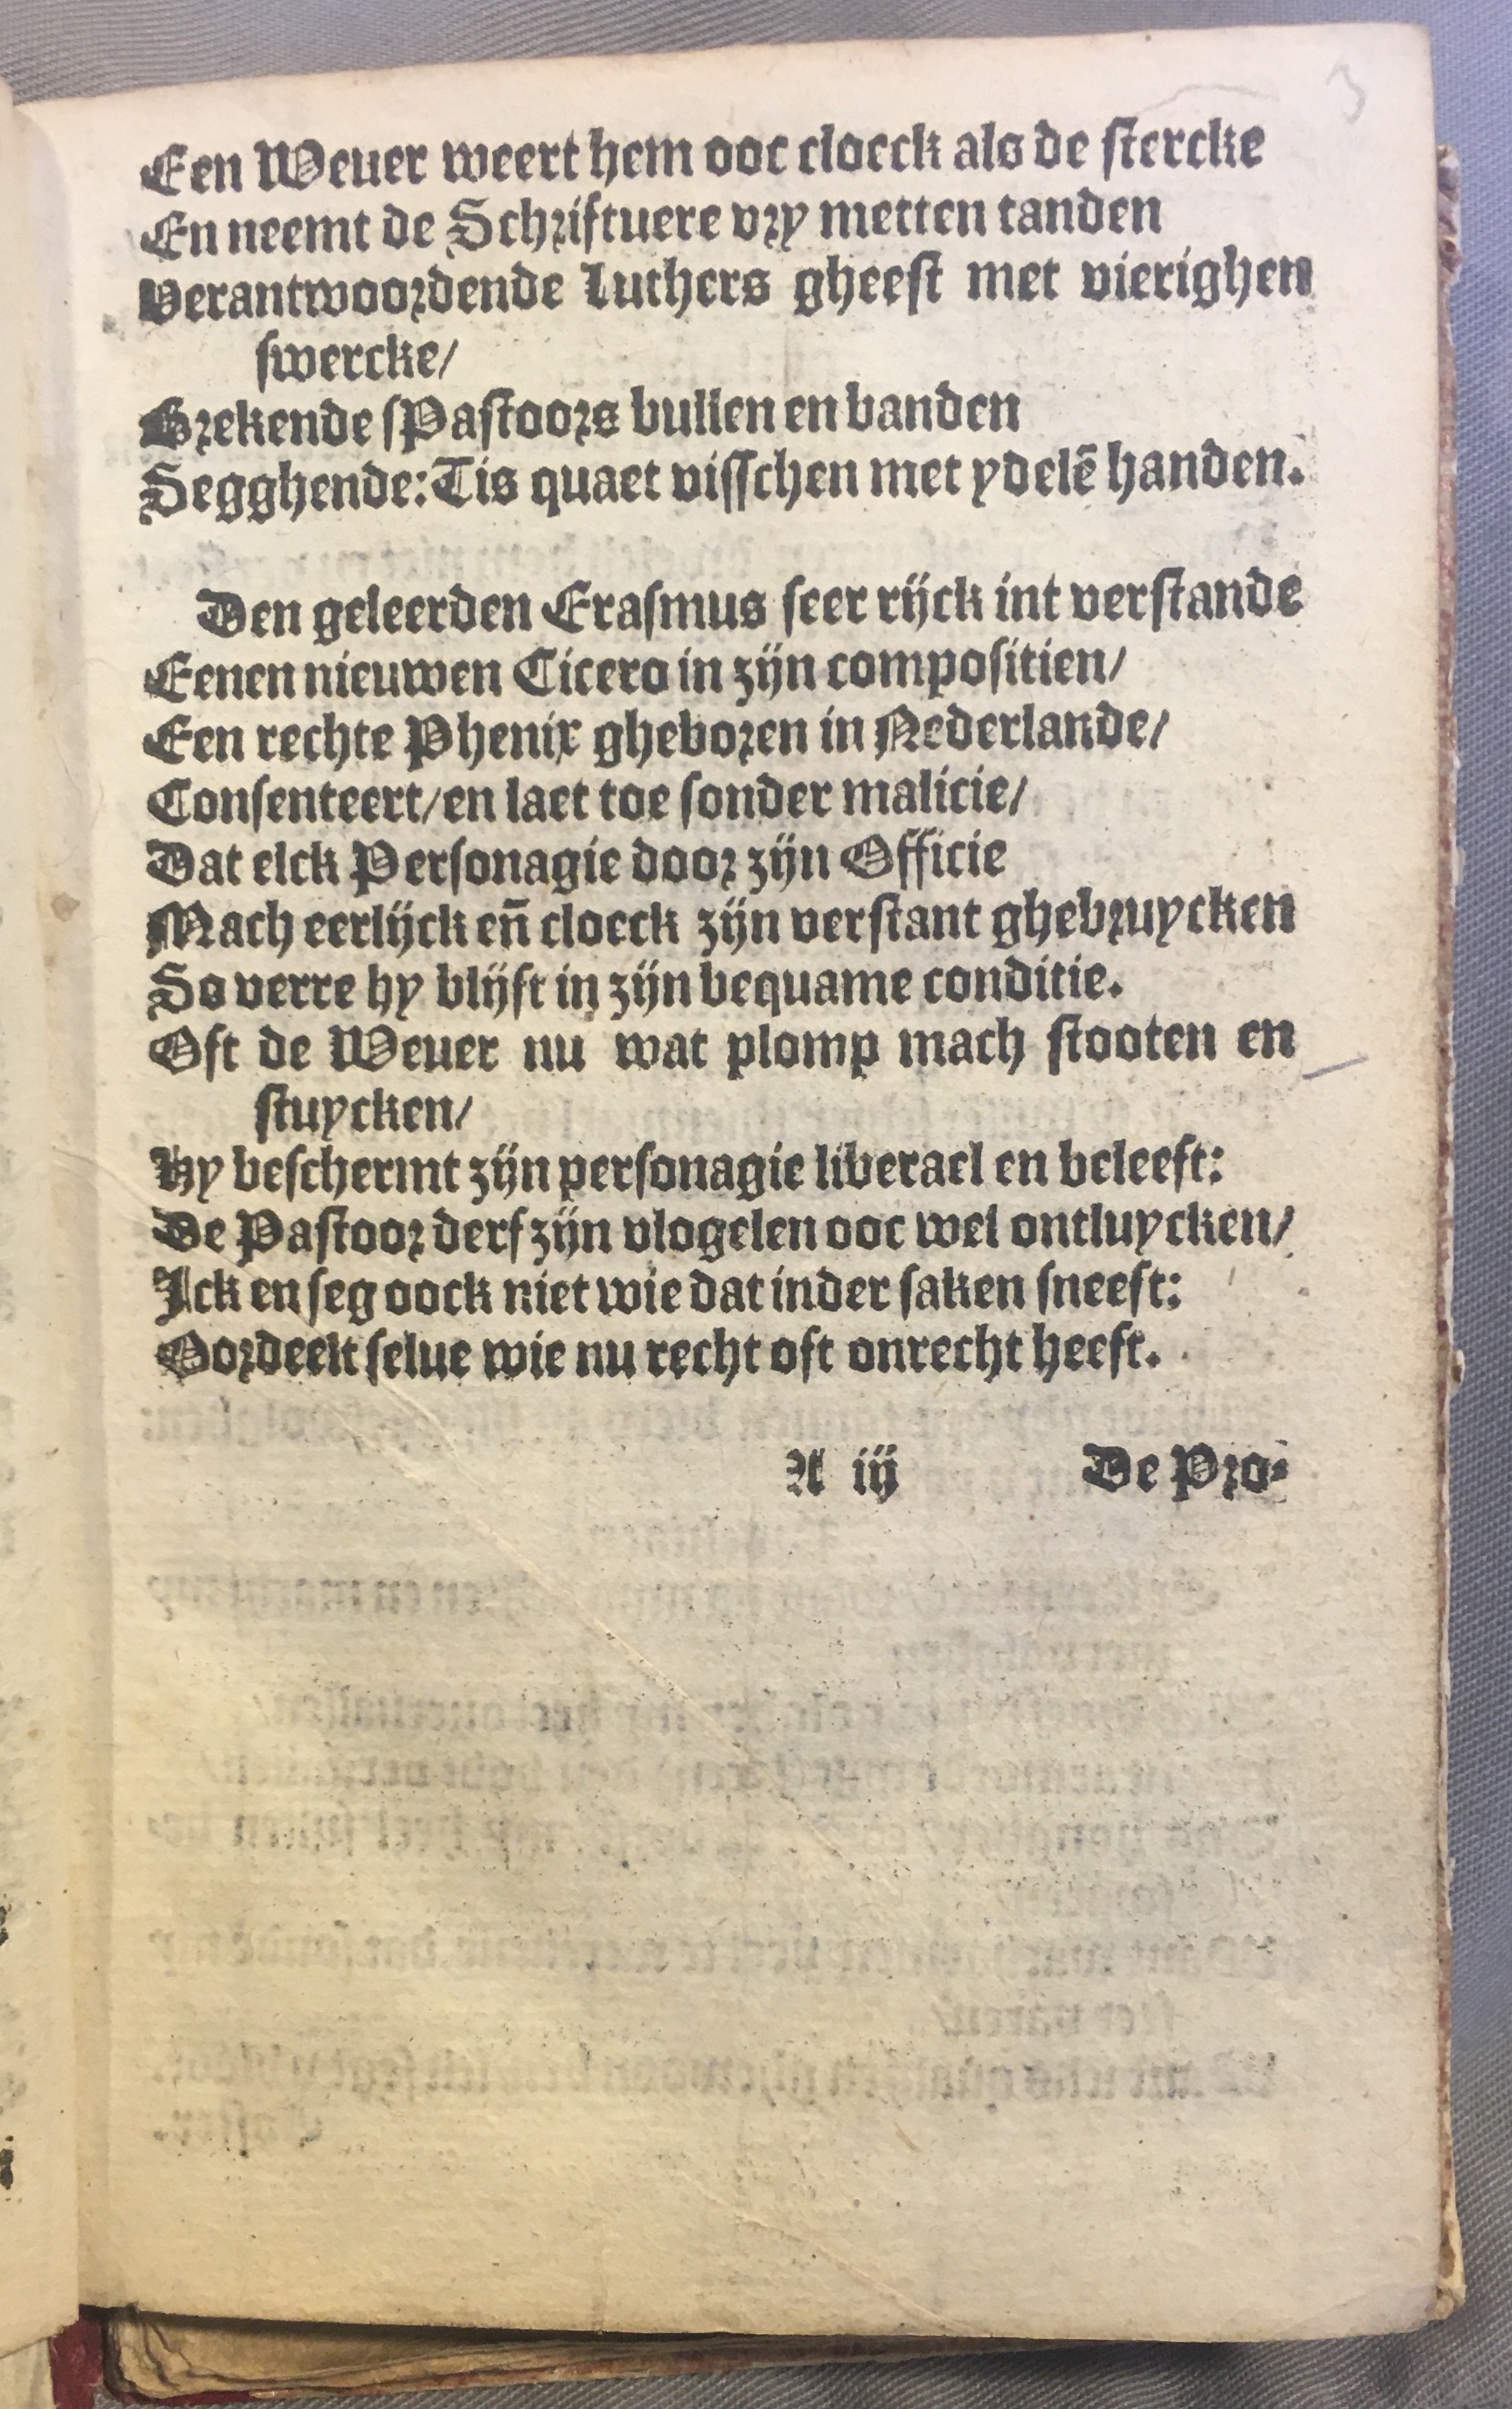 3
Een Weuer weert hem ooc cloeck als de stercke
En neemt de Schriftuere vry metten tanden
Verantwoordende Luthers gheest met vierighen
swercke/
Brekende sPastoors bullen en banden
Segghende: Tis quaet visschen met ydelē handen.
Den geleerden Erasmus seer rijck int verstande
Eenen nieuwen Cicero in zijn compositien/
Een rechte Phenix gheboren in Nederlande/
Consenteert/en laet toe sonder malicie/
Dat elck Personagie door zijn Officie
Mach eerlijck en̄ cloeck zijn verstant ghebruycken
So verre hy blijft in zijn bequame conditie.
Oft de Weuer nu wat plomp mach stooten en
stuycken/
Hy beschermt zijn personagie liberael en beleeft:
De Pastoor derf zijn vlogelen ooc wel ontluycken/
Ick en seg oock niet wie dat inder saken sneeft:
Oordeelt selue wie nu recht oft onrecht heeft.
A iij De Pro-